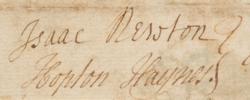 Isaac Newton
Hopton Haynes